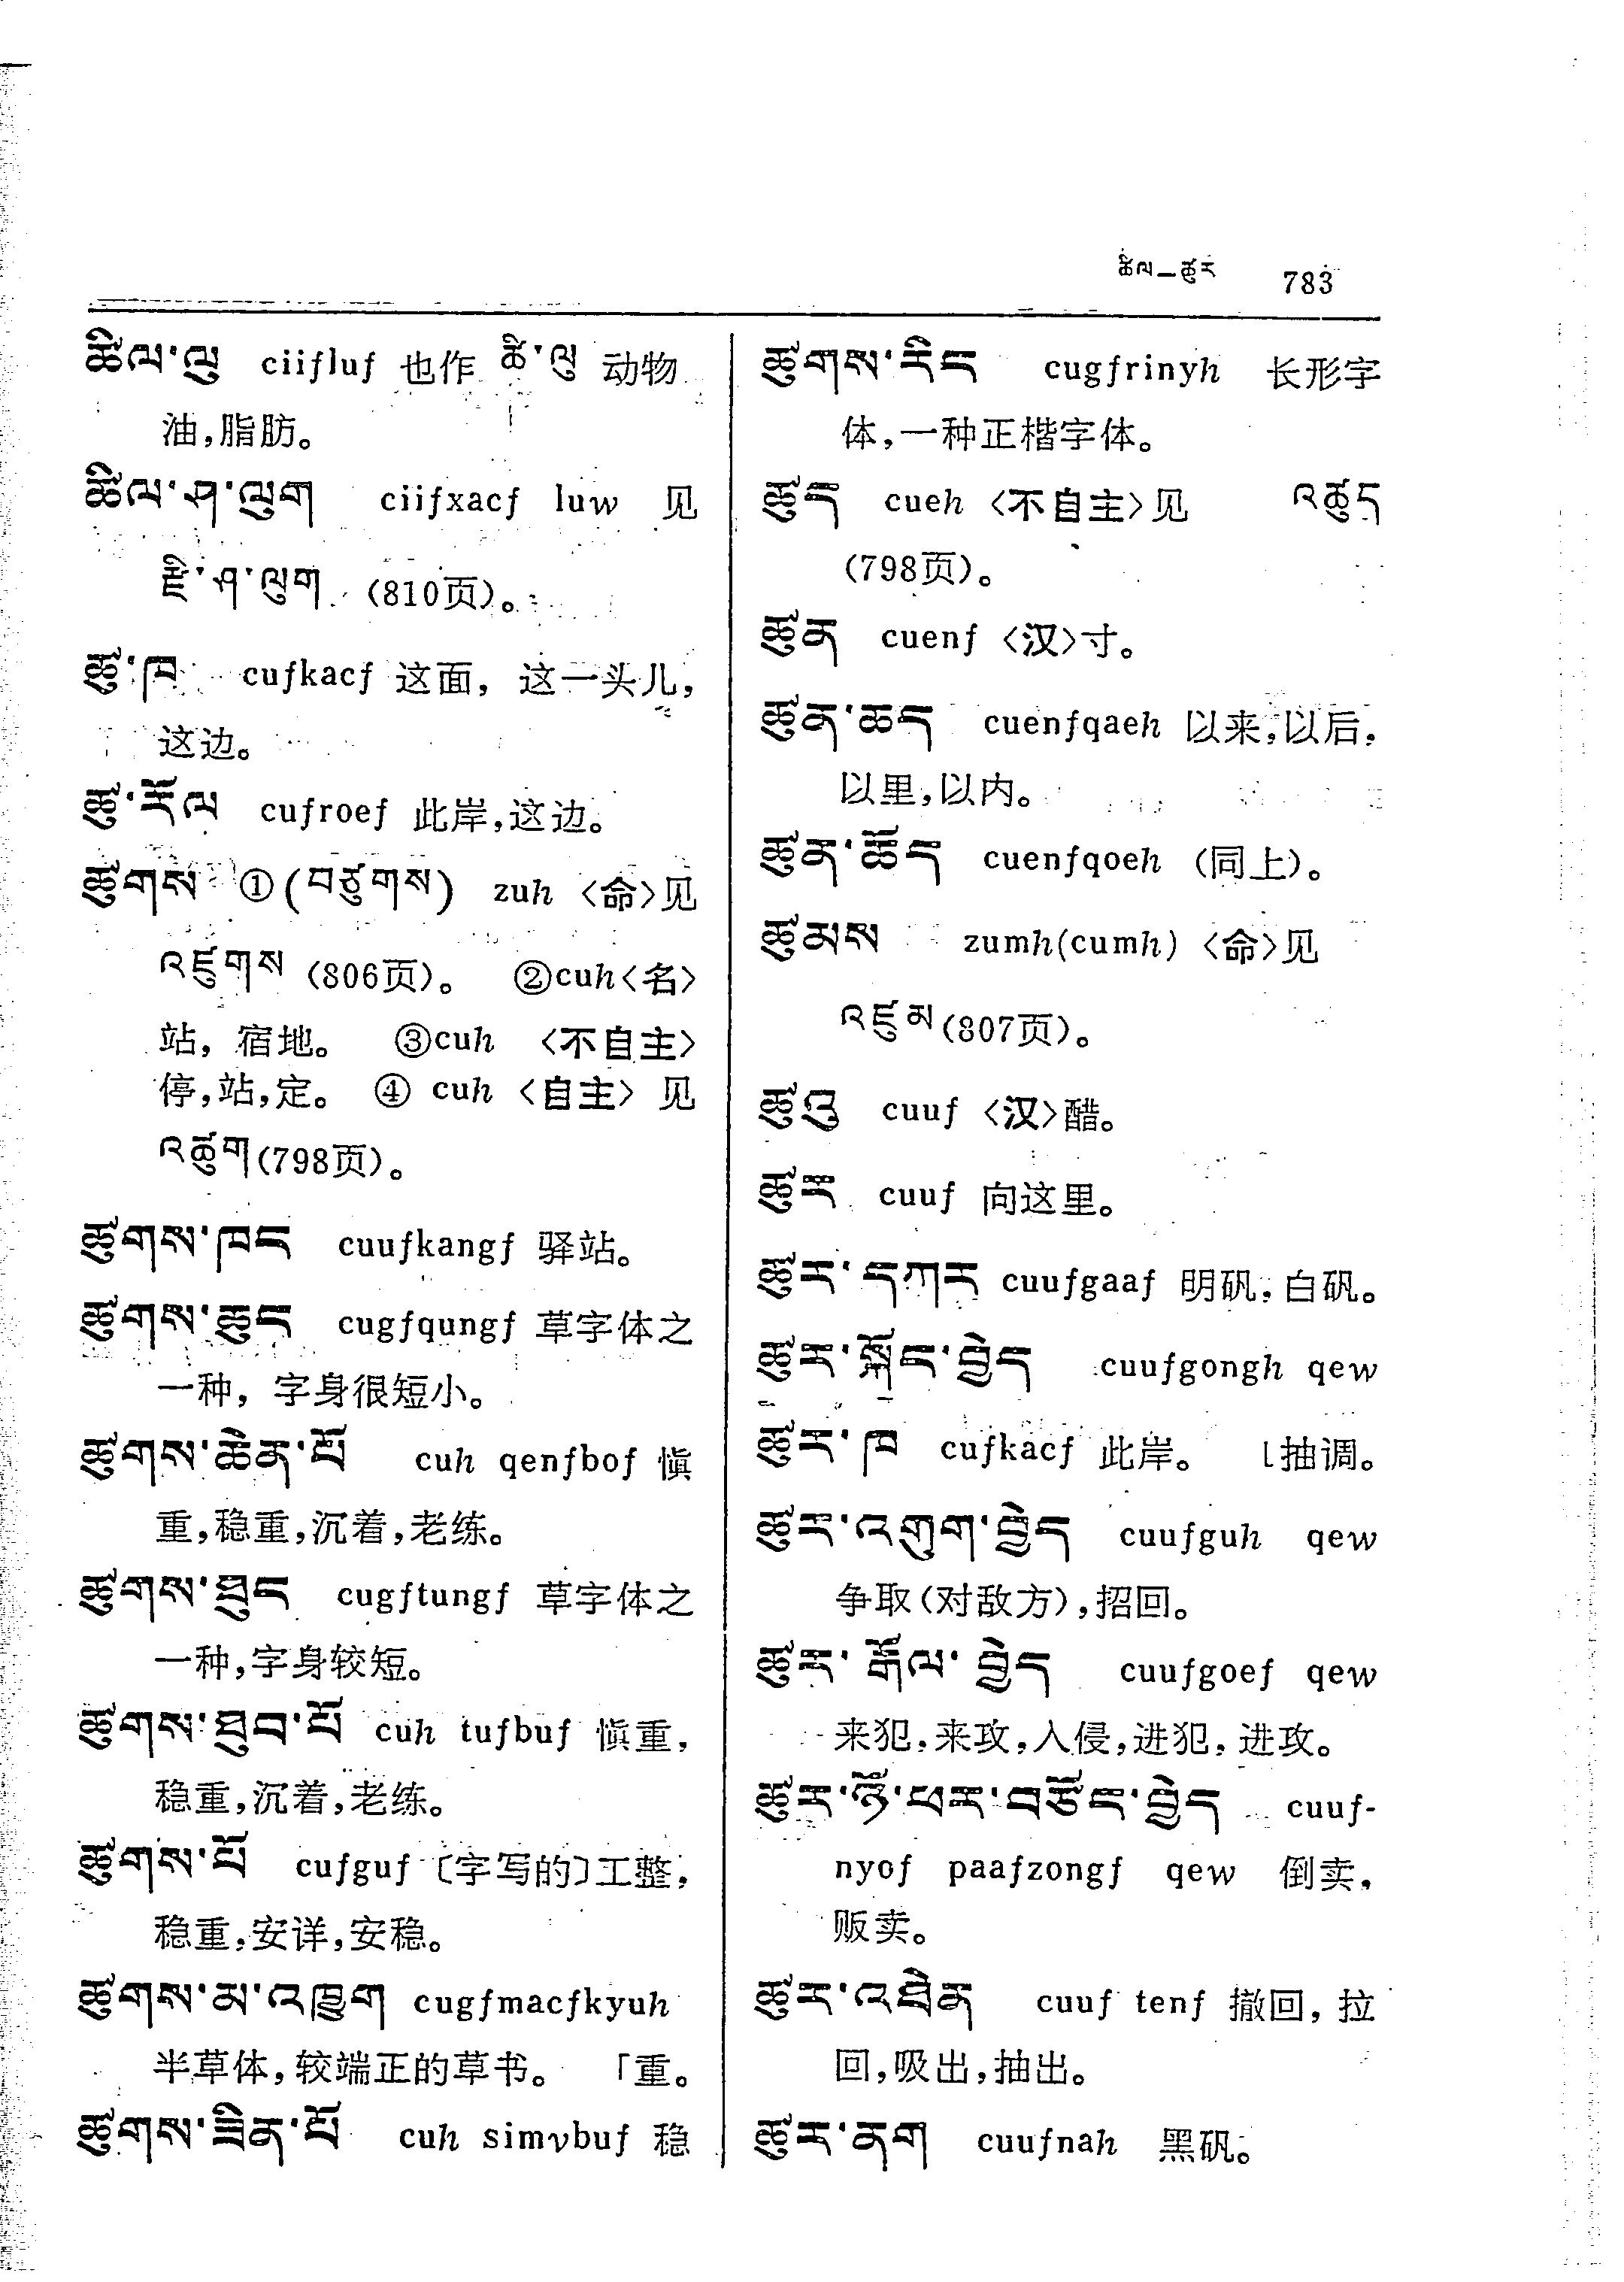 ཚིལ—ཚུར 783
ཚིལ་ལུ ciiƒluƒ 也作 ཚི་ལུ 动物
油,脂肪。
ཚིལ་ཤ་ལུག ciiƒxacƒ luw 见
རྫི་ཤ་ལུག (810页)。
ཚུ་ཁ cuƒkacƒ 这面, 这一头儿,
这边。
ཚུ་རོལ cuƒroeƒ 此岸,这边。
ཚུགས ①(བཙུགས) zuh 〈命〉见
འཛུགས (806页)。 ②cuh〈名〉
站, 宿地。 ③cuh 〈不自主〉
停,站,定。 ④ cuh 〈自主〉 见
འཚུག(798页)。
ཚུགས་ཁང cuuƒkangƒ 驿站。
ཚུགས་ཆུང cugƒqungƒ 草字体之
一种, 字身很短小。
ཚུགས་ཆེན་པོ cuh qenƒboƒ 慎
重,稳重,沉着,老练。
ཚུགས་ཐུང cugƒtungƒ 草字体之
一种,字身较短。
ཚུགས་ཐུབ་པོ cuh tuƒbuƒ 慎重,
稳重,沉着,老练。
ཚུགས་པོ cuƒguƒ 〔字写的〕工整,
稳重,安详,安稳。
ཚུགས་མ་འཁྱུག cugƒmacƒkyuh
半草体,较端正的草书。 「重。
ཚུགས་ཟིན་པོ cuh simvbuƒ 稳
ཚུགས་རིང cugƒrinyh 长形字
体,一种正楷字体。
ཚུད cueh 〈不自主〉见 འཚུད
(798页)。
ཚུན cuenƒ 〈汉〉寸。
ཚུན་ཆད cuenƒqaeh 以来,以后,
以里,以内。
ཚུན་ཆོད cuenƒqoeh (同上)。
ཚུམས zumh(cumh) 〈命〉见
འཛུམ(807页)。
ཚུའུ cuuƒ 〈汉〉醋。
ཚུར cuuƒ 向这里。
ཚུར་དཀར cuuƒgaaƒ 明矾,白矾。
ཚུར་སྐོང་བྱེད cuuƒgongh qew
ཚུར་ཁ cuƒkacƒ 此岸。 ⌊抽调。
ཚུར་འགུག་བྱེད cuuƒguh qew
争取(对敌方),招回。
ཚུར་རྒོལ་བྱེད cuuƒgoeƒ qew
来犯,来攻,入侵,进犯,进攻。
ཚུར་ཉོ་ཕར་བཙོང་བྱེད cuuƒ-
nyoƒ paaƒzongƒ qew 倒卖,
贩卖。
ཚུར་འཐེན cuuƒ tenƒ 撤回, 拉
回,吸出,抽出。
ཚུར་ནག cuuƒnah 黑矾。